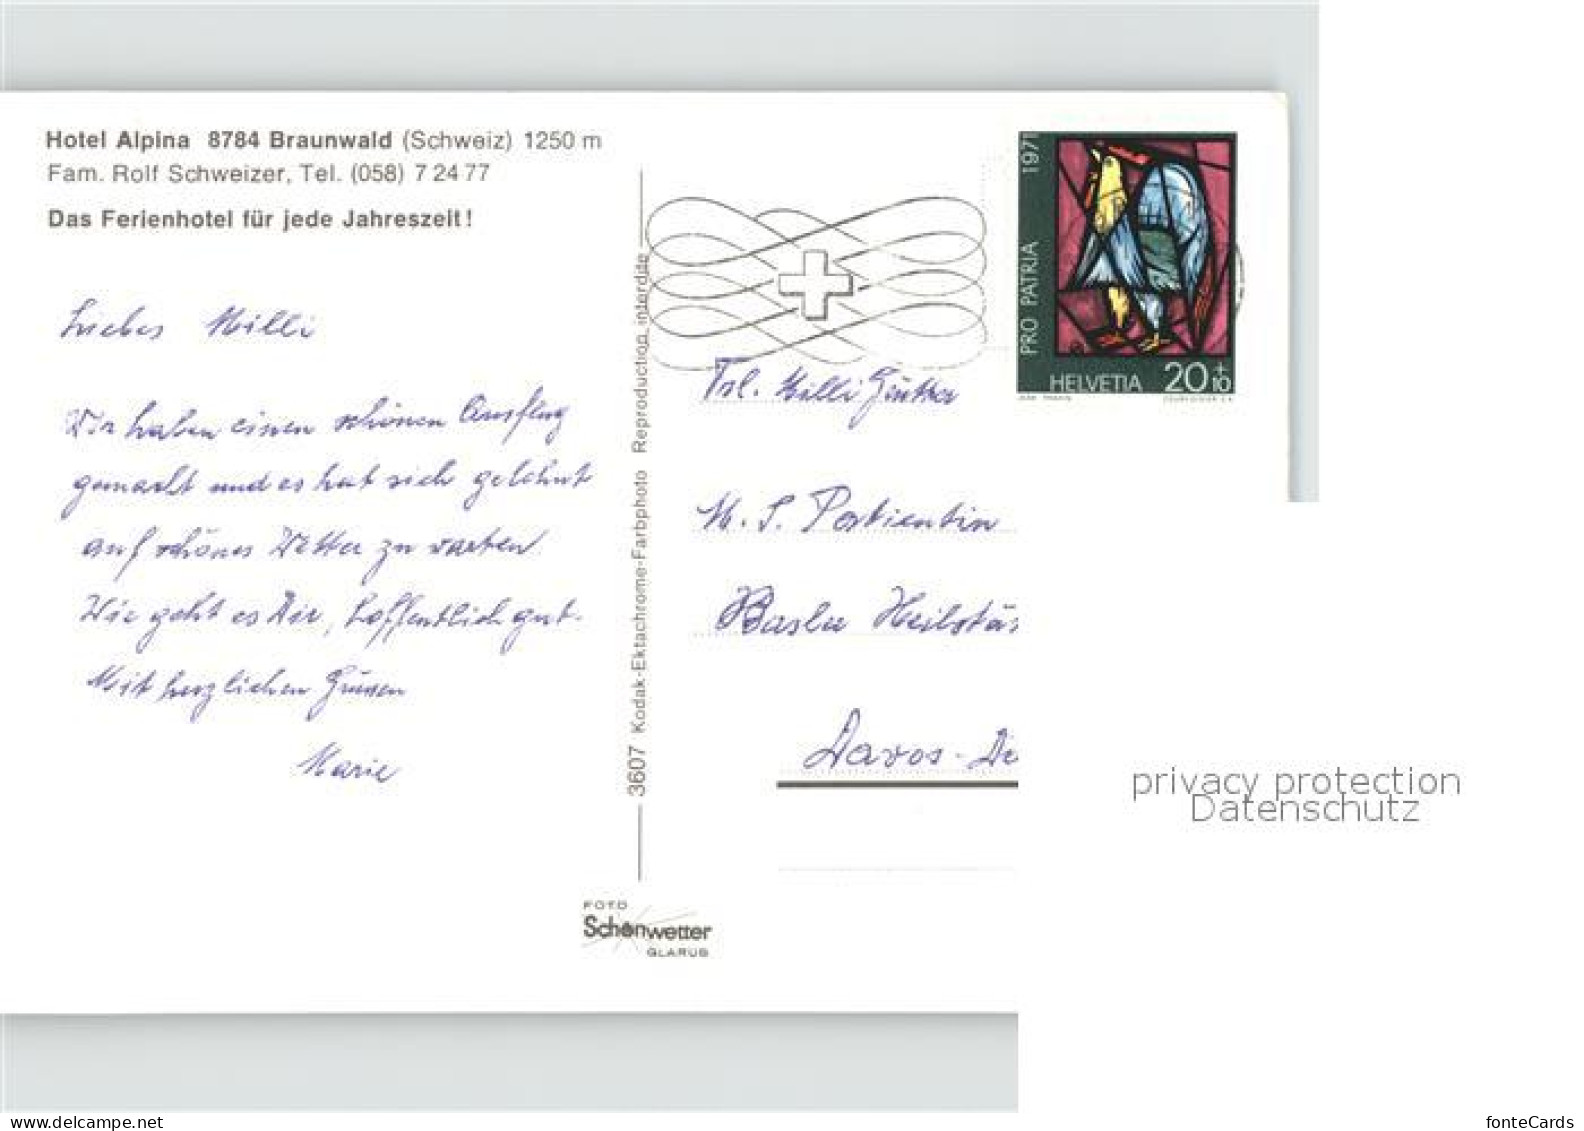 Hotel Alpina 8784 Braunwald (Schweiz) 1250 m
Fam. Rolf Schweizer, Tel. (058) 7 24 77
Das Ferienhotel für jede Jahreszeit!
Liebes Milli
Wir haben einen schönen Ausflug
gemacht und es hat sich gelohnt
auf schönes Wetter zu warten
Wie geht es Dir, hoffentlich gut.
Mit herzlichen Grüssen
Marie
3607 Kodak-Ektachrome-Farbphoto Reproduction interdite
FOTO
Schönwetter
GLARUS
PRO PATRIA 1971
HELVETIA 20+10
Frl. Milli
M. S. Patientin
Basler Heilstä
Davos-
privacy protection
Datenschutz
www.ansichtskartenversand.com
fonteCards